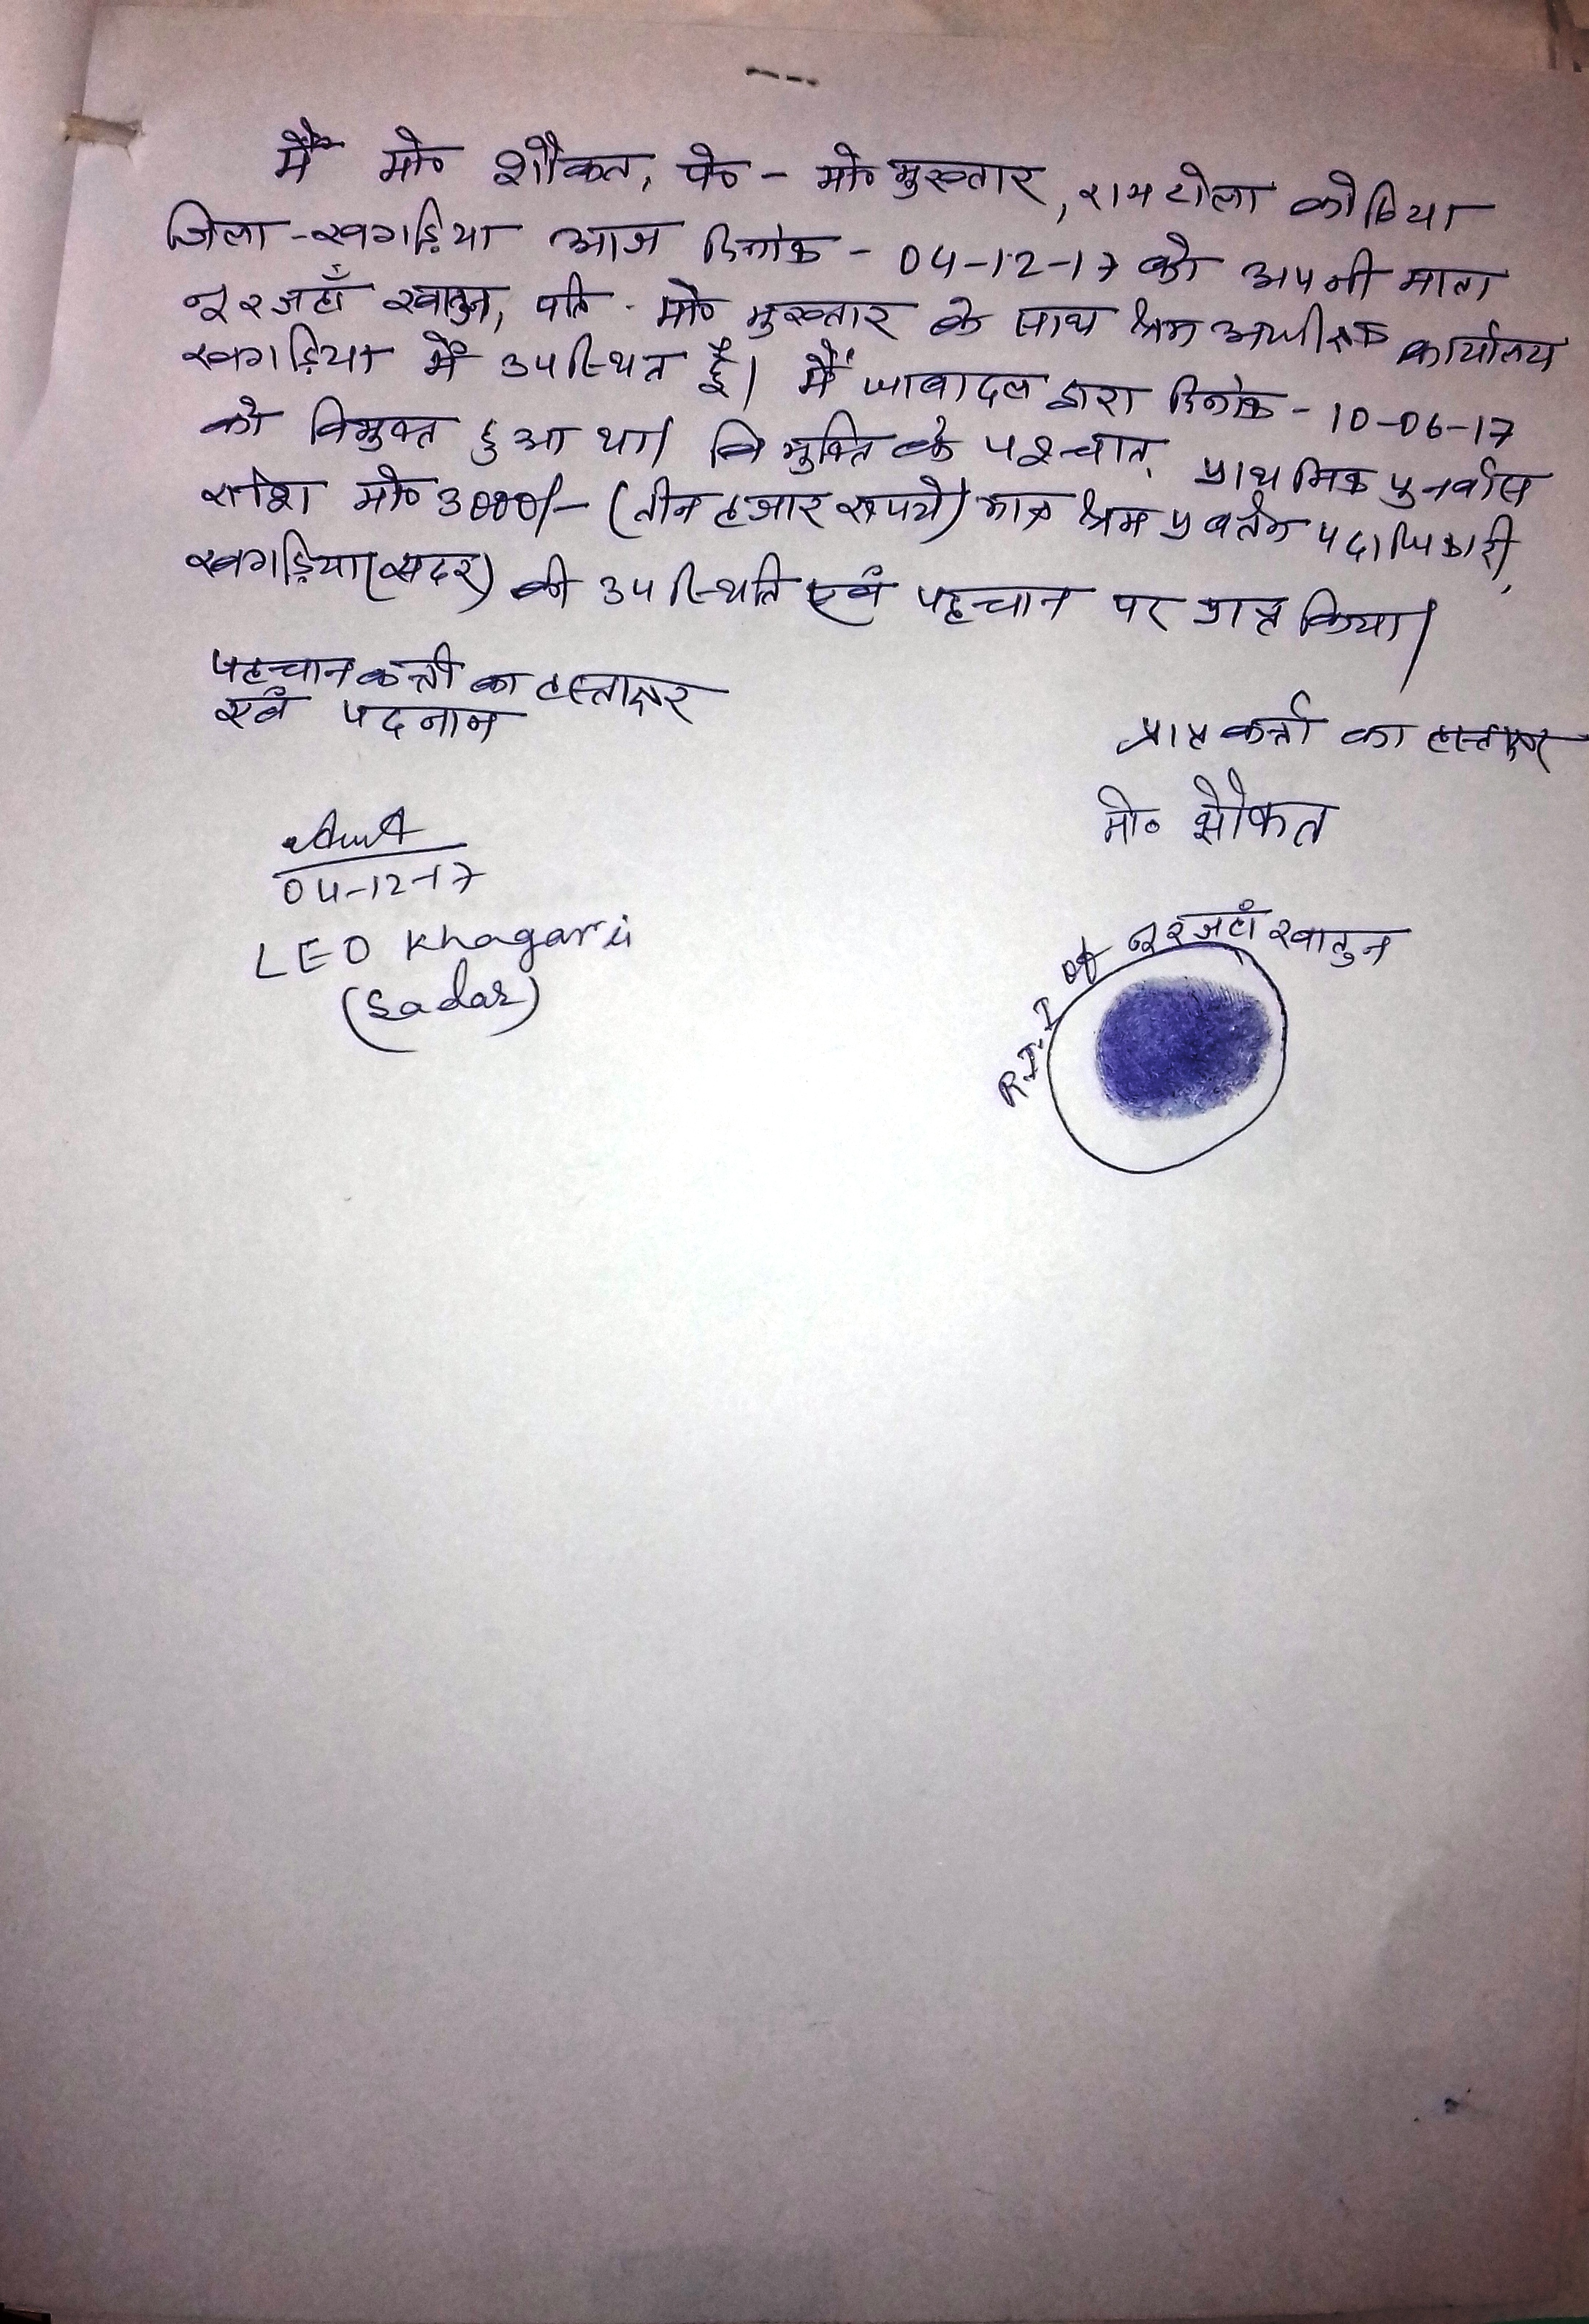 मैं मो० शौकत, पे०- मो० मुख्तार, रामटोला कोठिया
जिला-खगड़िया आज दिनांक- 04-12-17 को अपनी माता
नुरजहाँ खातुन, पति- मो० मुख्तार के साथ श्रम अधीक्षक कार्यालय
खगड़िया में उपस्थित हूँ। मैं धावादल द्वारा दिनांक- 10-06-17
को विमुक्त हुआ था। विमुक्ति के पश्चात प्राथमिक पुनर्वास
राशि मो० 3000/- (तीन हजार रूपये) मात्र श्रम प्रवर्तन पदाधिकारी,
खगड़िया (सदर) की उपस्थिति एवं पहचान पर प्राप्त किया।
पहचानकर्ता का हस्ताक्षर
एवं पदनाम
प्राप्तकर्ता का हस्ताक्षर
मो० शौकत
04-12-17
LEO Khagaria
(Sadar)
R.T.I of नुरजहाँ खातुन